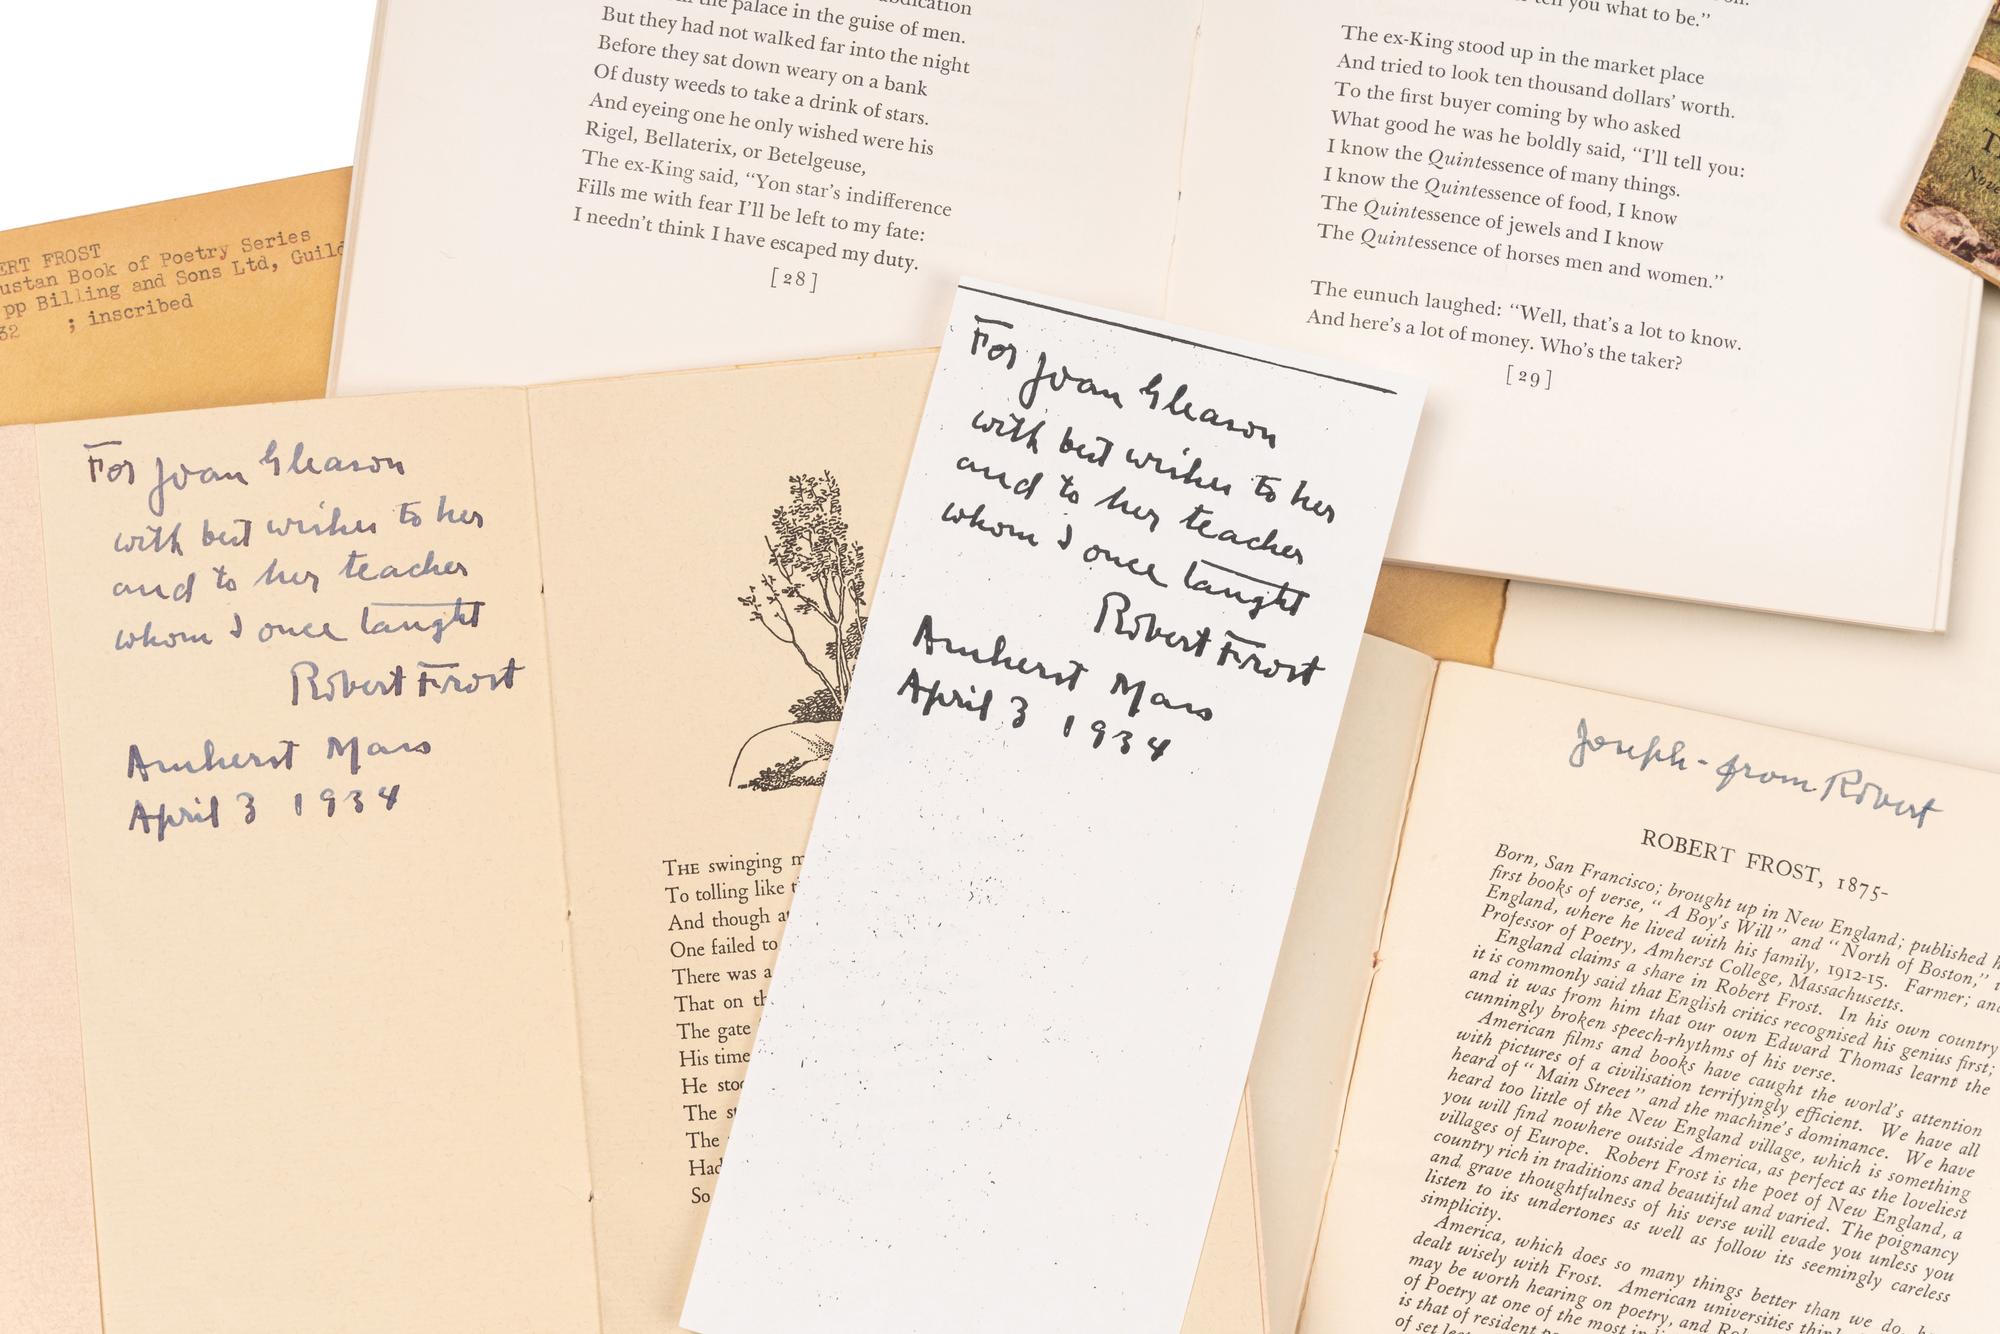 abdication
the palace in the guise of men.
But they had not walked far into the night
Before they sat down weary on a bank
Of dusty weeds to take a drink of stars.
And eyeing one he only wished were his
Rigel, Bellaterix, or Betelgeuse,
The ex-King said, “Yon star’s indifference
Fills me with fear I’ll be left to my fate:
I needn’t think I have escaped my duty.
[ 28 ]
tell you what to be.”
The ex-King stood up in the market place
And tried to look ten thousand dollars’ worth.
To the first buyer coming by who asked
What good he was he boldly said, “I’ll tell you:
I know the Quintessence of many things.
I know the Quintessence of food, I know
The Quintessence of jewels and I know
The Quintessence of horses men and women.”
The eunuch laughed: “Well, that’s a lot to know.
And here’s a lot of money. Who’s the taker?
[ 29 ]
ERT FROST
ustan Book of Poetry Series
pp Billing and Sons Ltd, Guild
32 ; inscribed
For Joan Gleason
with best wishes to her
and to her teacher
whom I once taught
Robert Frost
Amherst Mass
April 3 1934
THE swinging m
To tolling like t
And though a
One failed to
There was a
That on th
The gate
His time
He stoo
The s
The
Had
So
For Joan Gleason
with best wishes to her
and to her teacher
whom I once taught
Robert Frost
Amherst Mass
April 3 1934
Joseph - from Robert
ROBERT FROST, 1875-
Born, San Francisco; brought up in New England; published h
first books of verse, “A Boy’s Will” and “North of Boston,” i
England, where he lived with his family, 1912-15. Farmer; and
Professor of Poetry, Amherst College, Massachusetts.
England claims a share in Robert Frost. In his own country
it is commonly said that English critics recognised his genius first;
and it was from him that our own Edward Thomas learnt the
cunningly broken speech-rhythms of his verse.
American films and books have caught the world’s attention
with pictures of a civilisation terrifyingly efficient. We have all
heard of “Main Street” and the machine’s dominance. We have
heard too little of the New England village, which is something
you will find nowhere outside America, as perfect as the loveliest
villages of Europe. Robert Frost is the poet of New England, a
country rich in traditions and beautiful and varied. The poignancy
and grave thoughtfulness of his verse will evade you unless you
listen to its undertones as well as follow its seemingly careless
simplicity.
America, which does so many things better than we do, h
dealt wisely with Frost. American universities think
may be worth hearing on poetry, and Rob
of Poetry at one of the most in
is that of resident po
of set lect